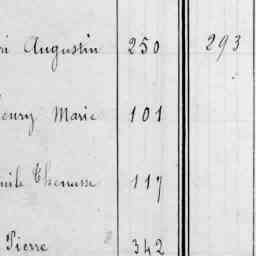 ri Augustin 250 293
enry Marie 101
mile Thenasse 117
Pierre 342